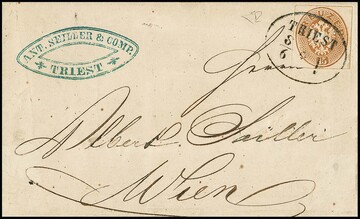 ANT. SEILLER & COMP.
TRIEST
TRIEST
Herrn
Albert Sailler
Wien